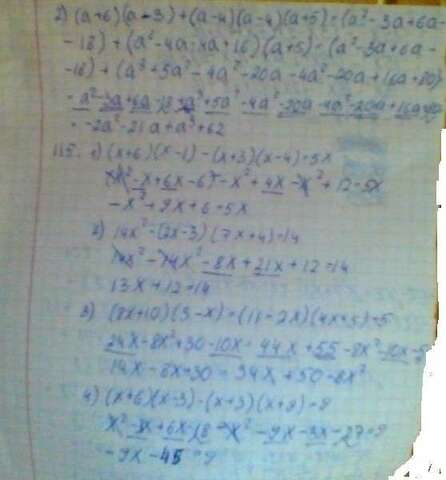 2) (a+6)(a-3)+(a-4)(a-4)(a+5)=(a²-3a+6a-
-18)+(a²-4a-4a+16)(a+5)=(a²-3a+6a-
-18)+(a³+5a²-4a²-20a-4a²-20a+16a+80)
=a²-3a+6a-18+a³+5a²-4a²-20a-4a²-20a+16a+80
=-2a²-21a+a³+62
115. 1) (x+6)(x-1)-(x+3)(x-4)=5x
x²-x+6x-6-x²+4x-x²+12=5x
-x²+9x+6=5x
2) 14x²-(2x-3)(7x+4)=14
14x²-14x²-8x+21x+12=14
13x+12=14
3) (8x+10)(3-x)=(11-2x)(4x+5)-5
24x-8x²+30-10x=44x+55-8x²-10x-5
14x-8x+30=34x+50-8x²
4) (x+6)(x-3)-(x+3)(x+9)=9
x²-3x+6x-18-x²-9x-3x-27=9
-9x-45=9